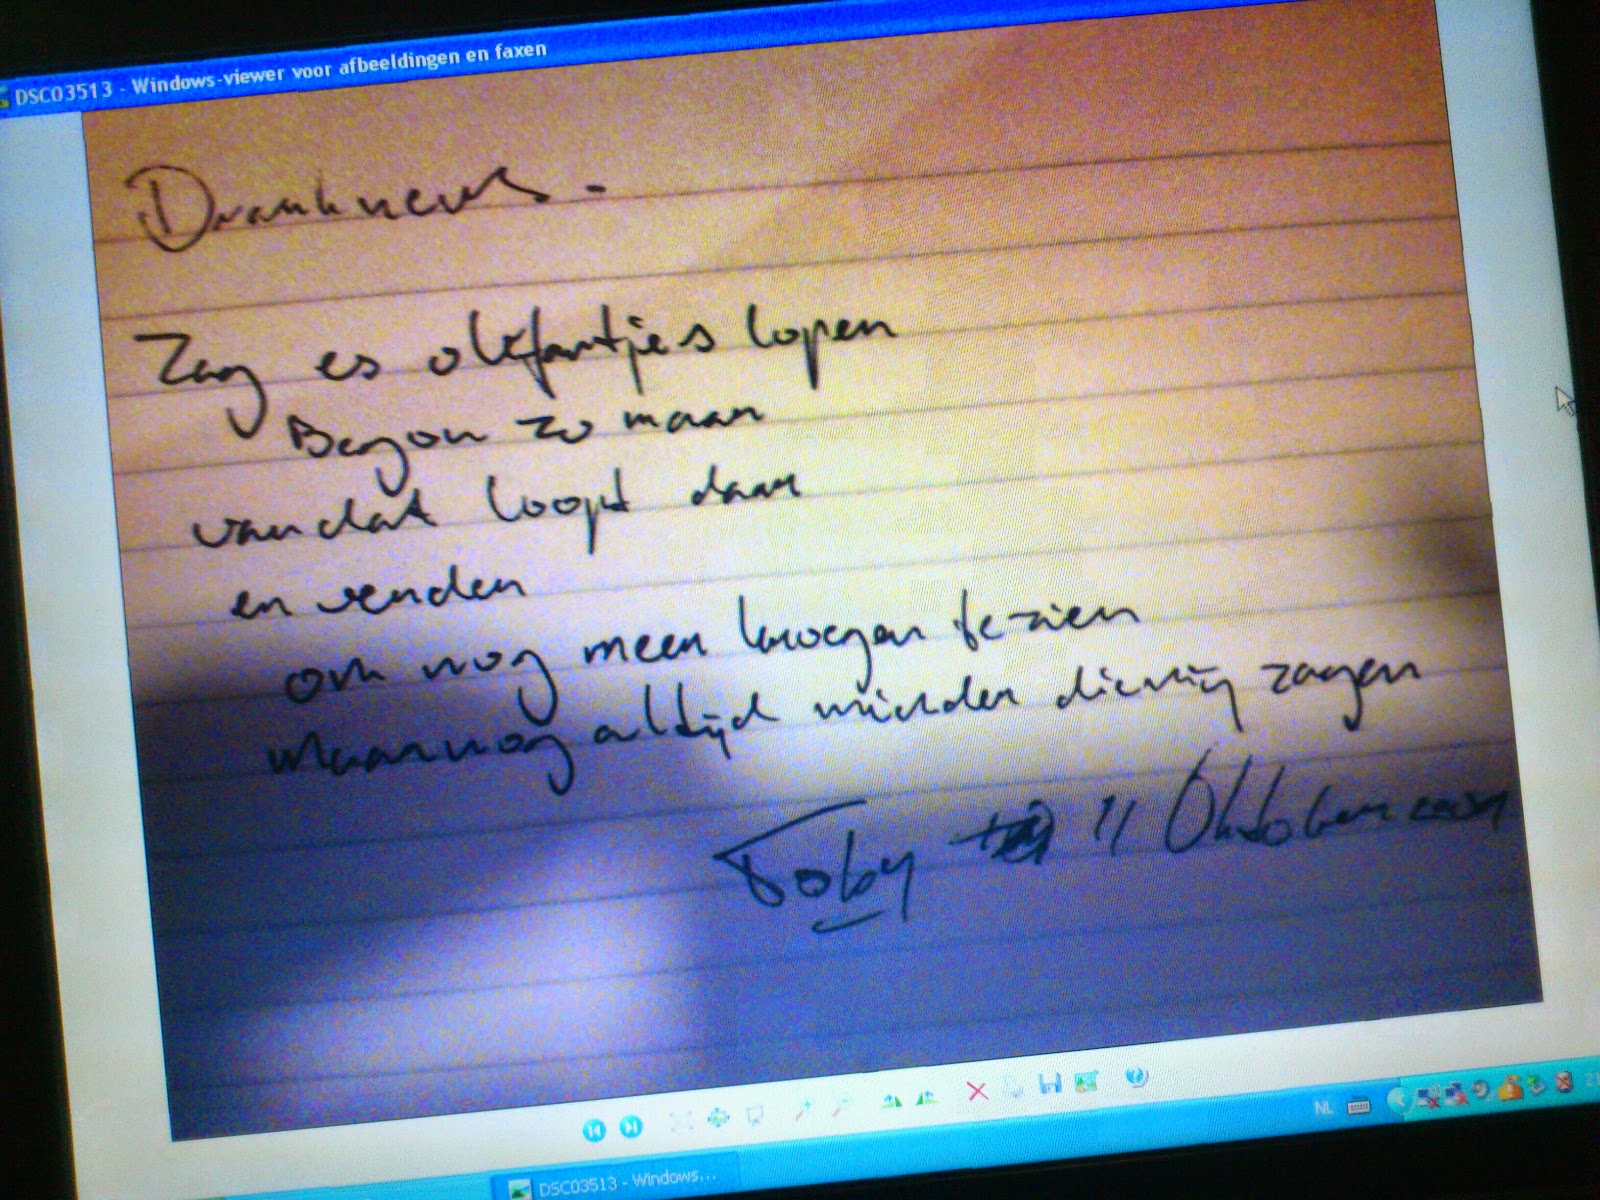 DSC03513 - Windows-viewer voor afbeeldingen en faxen
Drankneus -
Zag es olifantjes lopen
Begon zo maar
van dat loopt daar
en renden
om nog meer kroegen te zien
Maar nog altijd minder dierig zagen
Toby 11 Oktober
NL
21
DSC03513 - Windows...